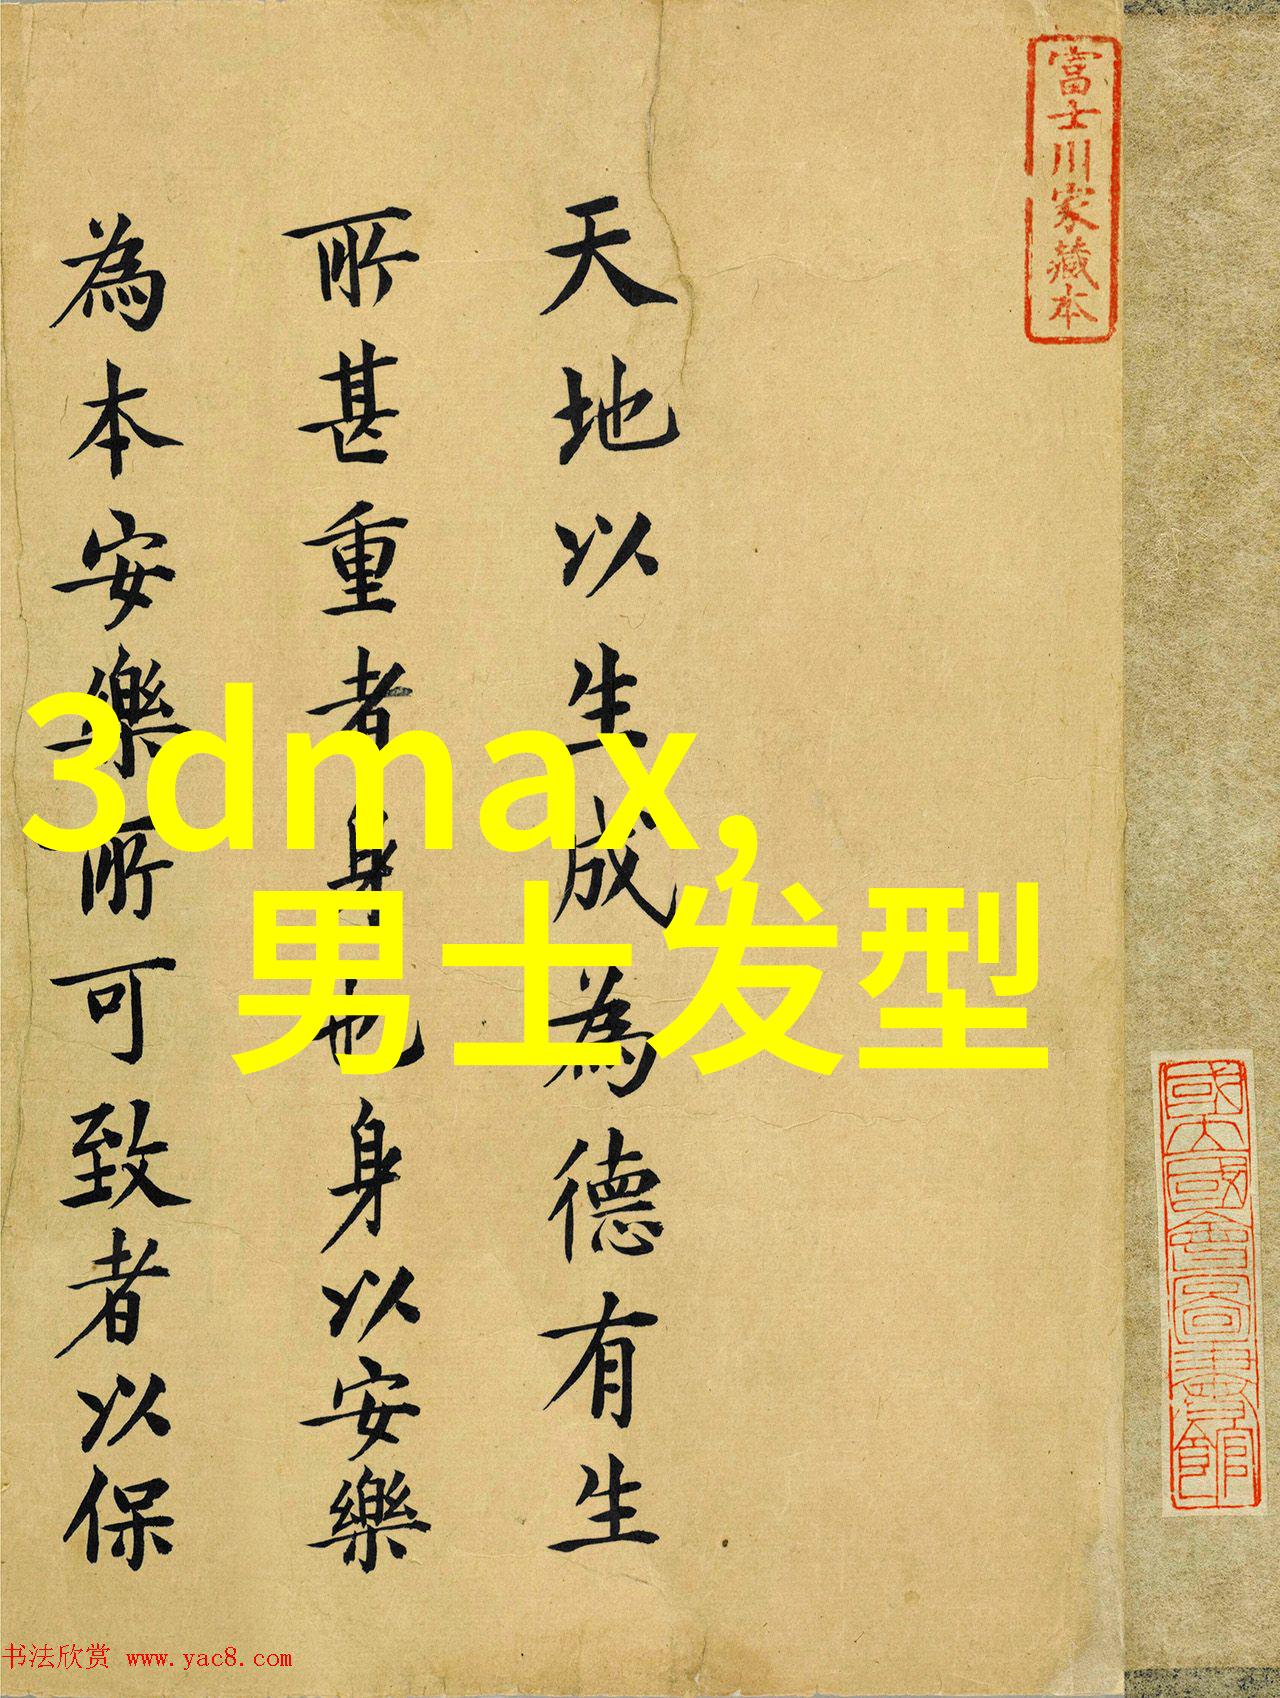 富士川家藏本
天地以生成為德有生
所甚重者身也身以安樂
為本安樂所可致者以保
3dmax,
男士发型
國立國會圖書館藏印
书法欣赏 www.yac8.com